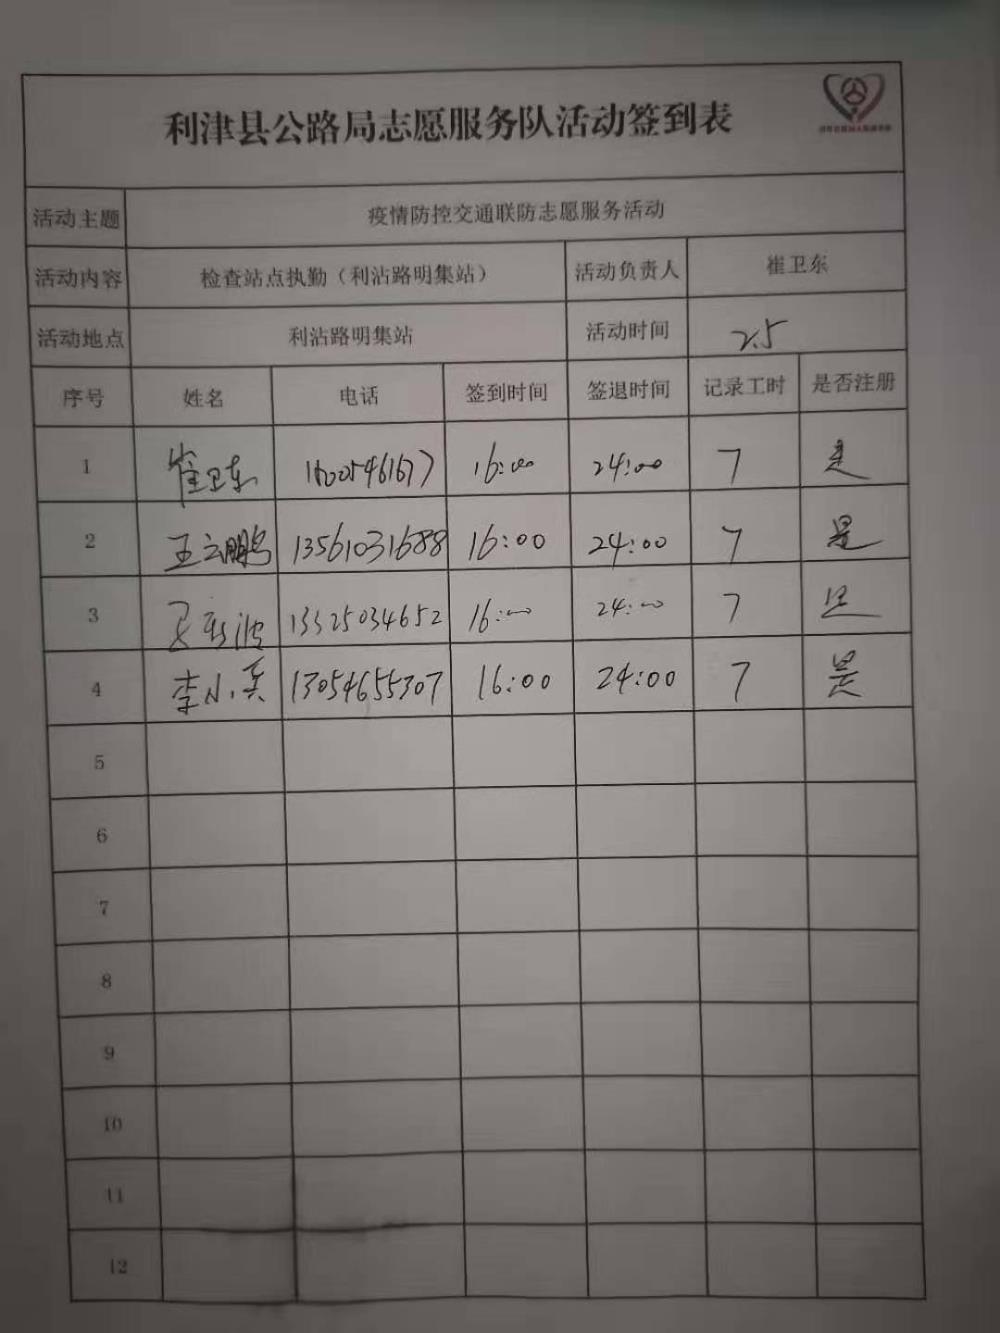 利津县公路局志愿服务队活动签到表
活动主题 疫情防控交通联防志愿服务活动
活动内容 检查站点执勤（利沾路明集站） 活动负责人 崔卫东
活动地点 利沾路明集站 活动时间 2.5
序号 姓名 电话 签到时间 签退时间 记录工时 是否注册
1 崔卫东 16:00 24:00 7 是
2 王云鹏 13561031688 16:00 24:00 7 是
3 13325034652 16:00 24:00 7 是
4 李小英 13054655307 16:00 24:00 7 是
5
6
7
8
9
10
11
12